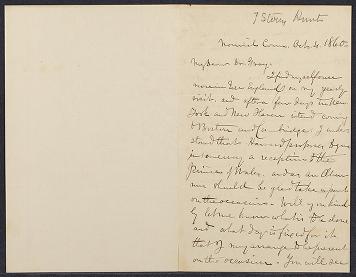 T Sterry Hunt
Norwich Conn. Oct. 4. 1860.
My Dear Dr. Gray.
I find myself once
more in New England on my yearly
visit and after a few days in New
York and New Haven intend coming
to Boston and Cambridge. I under
stand that Harvard proposes
a reception to the
Prince of Wales, and as an
should be glad take a part
on the occasion. Will you kind
ly let me know what is to be done
and what day is fixed for it
that I may arrange to be present
on the occasion. You will see